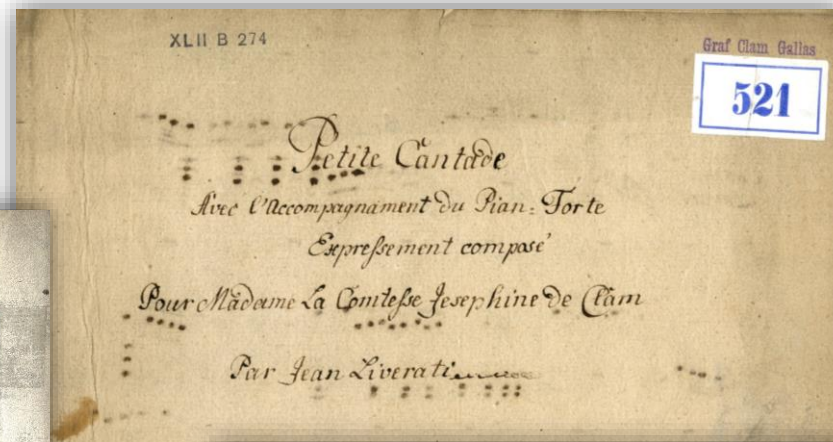 XLII B 274
Graf Clam Gallas
521
Petite Cantade
Avec l'Accompagnament du Pian=Forte
Expressement composé
Pour Madame La Comtesse Jesephine de Clam
Par Jean Liverati